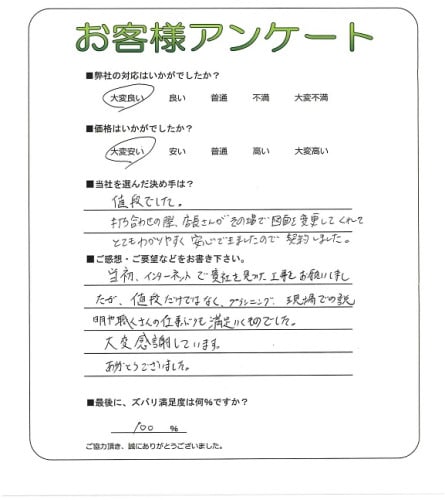 お客様アンケート
■弊社の対応はいかがでしたか?
大変良い 良い 普通 不満 大変不満
■価格はいかがでしたか?
大変安い 安い 普通 高い 大変高い
■当社を選んだ決め手は?
値段でした。
打ち合わせの際、店長さんがその場で図面を変更してくれて
とてもわかりやすく安心できましたので契約しました。
■ご感想・ご要望などをお書き下さい。
当初、インターネットで貴社を見つけ工事をお願いしまし
たが、値段だけではなく、プランニング、現場での説
明や職人さんの仕事も満足いくものでした。
大変感謝しています。
ありがとうございました。
■最後に、ズバリ満足度は何%ですか?
100 %
ご協力頂き、誠にありがとうございました。